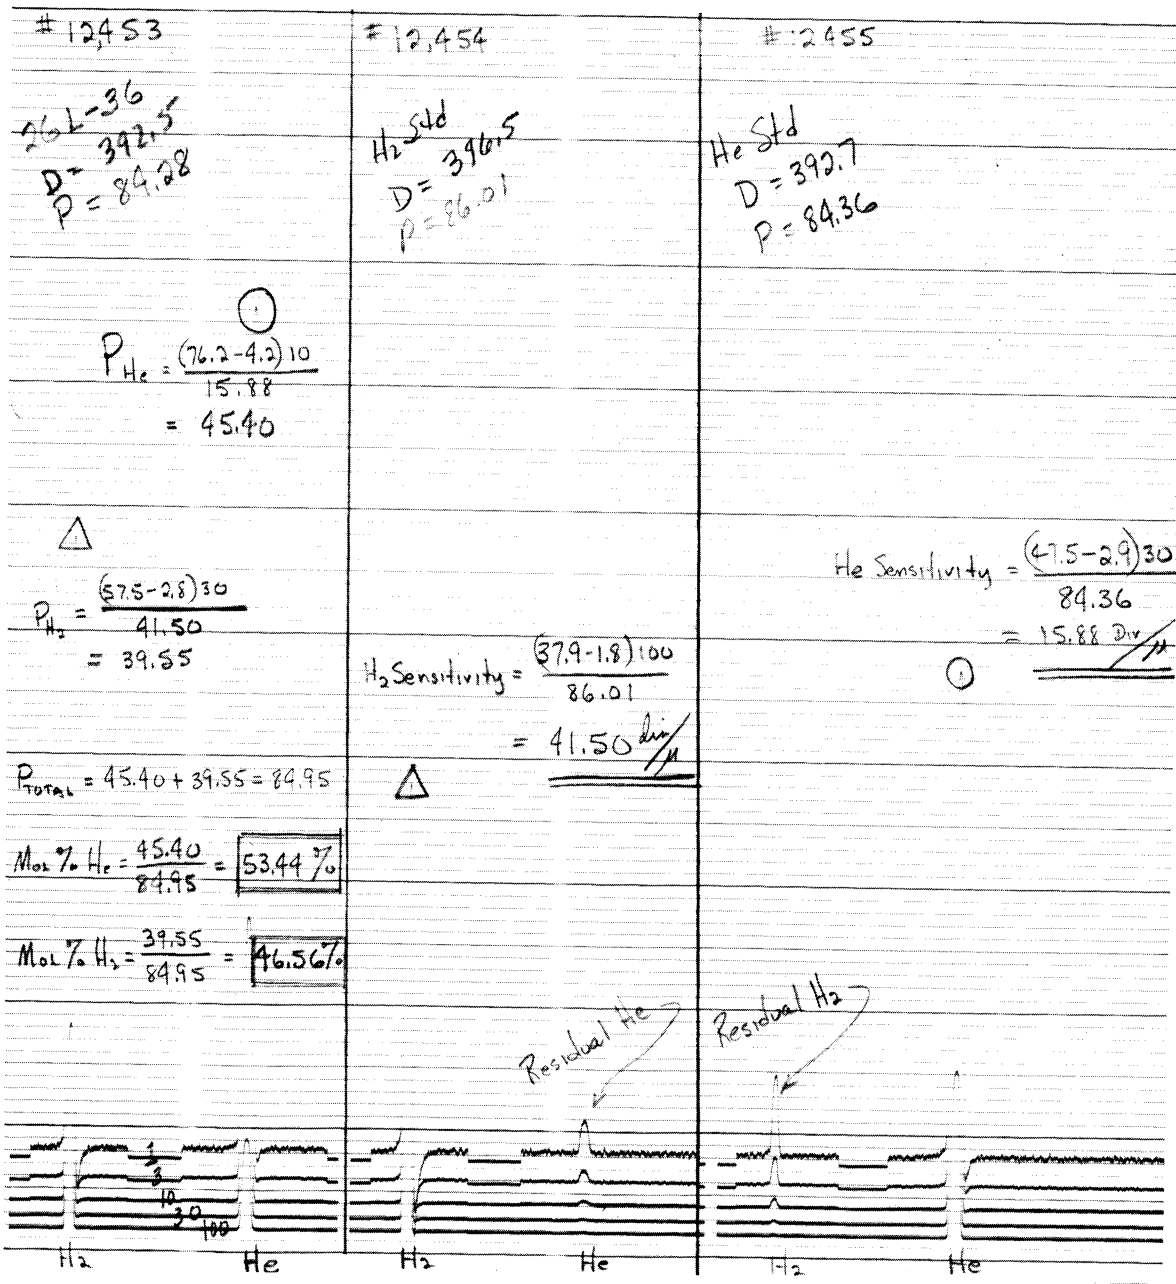 # 12,453
26L-36
D = 392.5
P = 84.28
P He = (76.2-4.2)10
15.88
= 45.40
P H₂ = (57.5-2.8)30
41.50
= 39.55
P TOTAL = 45.40 + 39.55 = 84.95
Mol % He = 45.40 / 84.95 = 53.44 %
Mol % H₂ = 39.55 / 84.95 = 46.56%
# 12,454
H₂ Std
D = 396.5
P = 86.01
H₂ Sensitivity = (37.9-1.8)100
86.01
= 41.50 div/μ
Residual He
# 12455
He Std
D = 392.7
P = 84.36
He Sensitivity = (47.5-2.9)30
84.36
= 15.88 Div/μ
Residual H₂
1
3
10
30
100
H₂ He H₂ He H₂ He